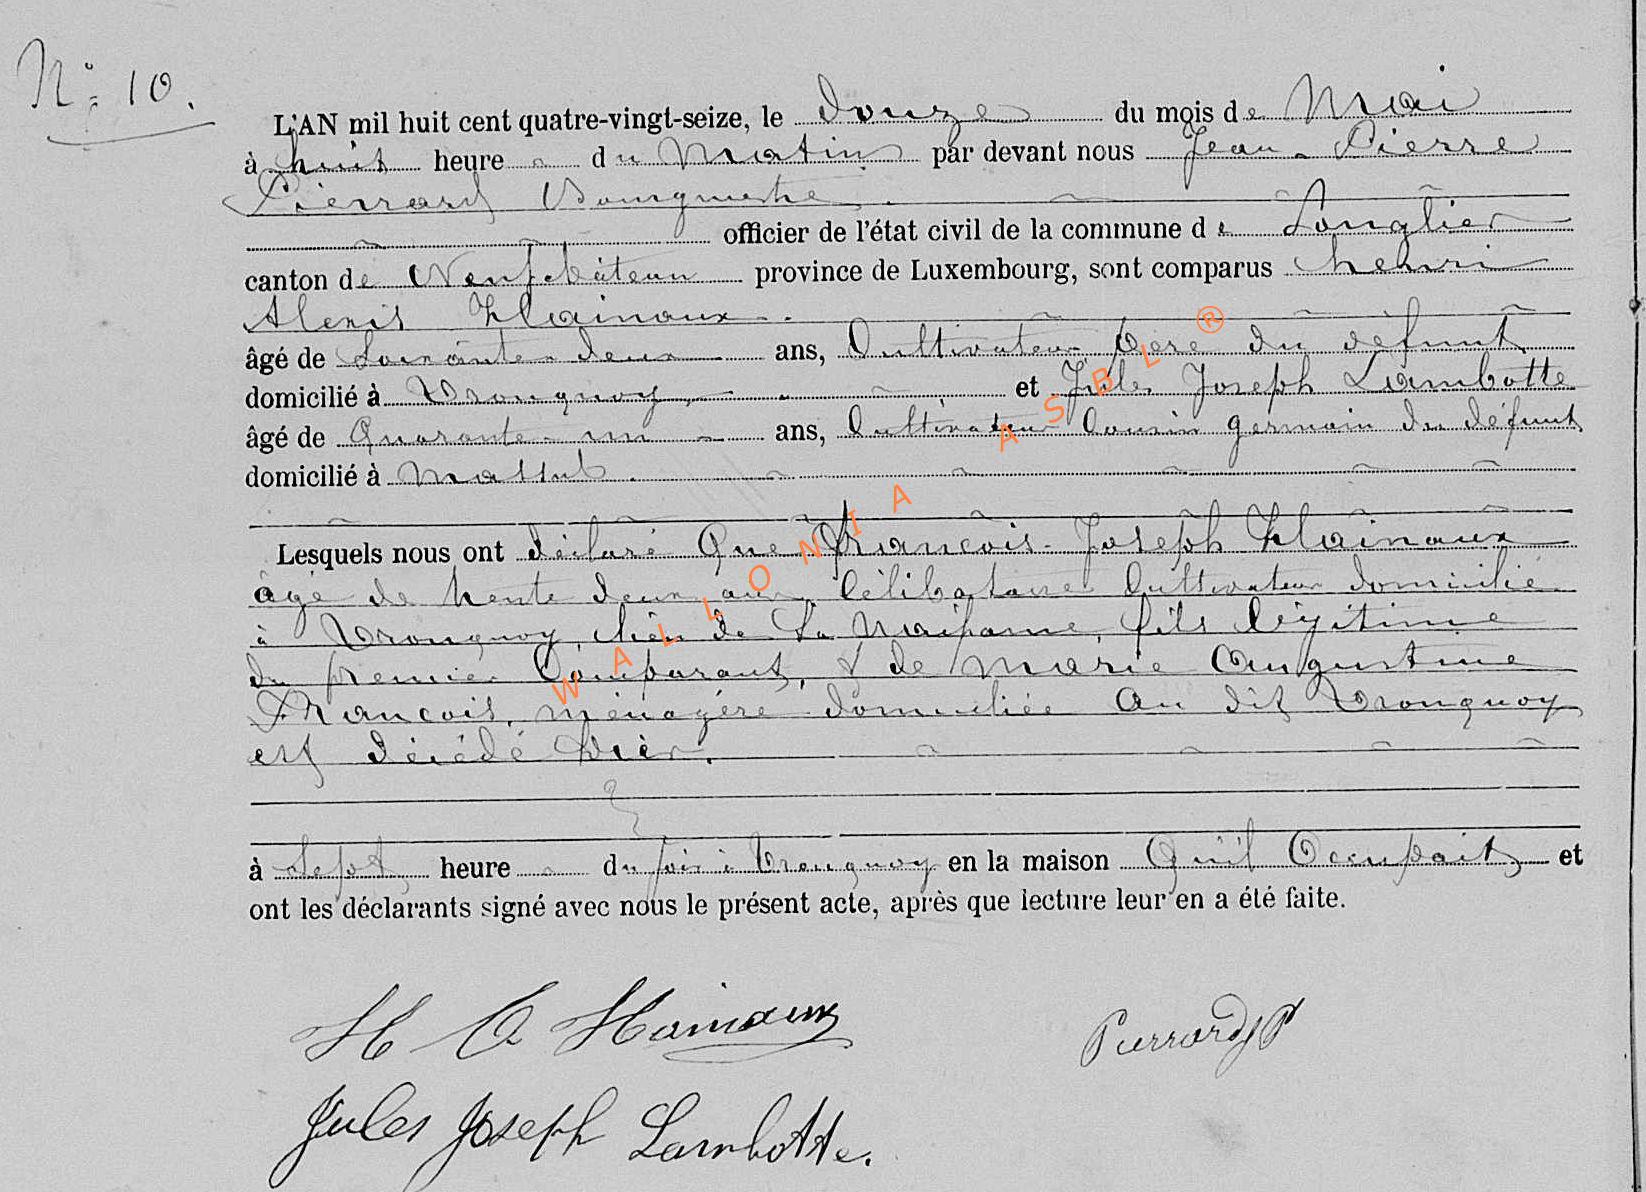 N° 10.
L'AN mil huit cent quatre-vingt-seize, le douze du mois de Mai
à huit heure du Matin par devant nous Jean-Pierre
Pierrard Bourgmestre
officier de l'état civil de la commune de Longlier
canton de Neufchâteau province de Luxembourg, sont comparus henri
Alexis Hainaux
âgé de Soixante deux ans, Cultivateur père du défunt
domicilié à Tronquoy, et Jules Joseph Lambotte
âgé de Quarante-un ans, Cultivateur Cousin germain du défunt
domicilié à Massul
Lesquels nous ont déclaré Que François-Joseph Hainaux
âgé de trente deux ans Célibataire Cultivateur domicilié
à Tronquoy, lieu de Sa Naissance, fils légitime
du premier Comparant, & de Marie Augustine
François, ménagère domiciliée Au dit Tronquoy
est décédé hier.
à Sept heure du soir à Tronquoy en la maison Qu'il Occupait et
ont les déclarants signé avec nous le présent acte, après que lecture leur en a été faite.
H A Hainaux
Pierrard JP
Jules Joseph Lambotte.
WALLONIA ASBL ®